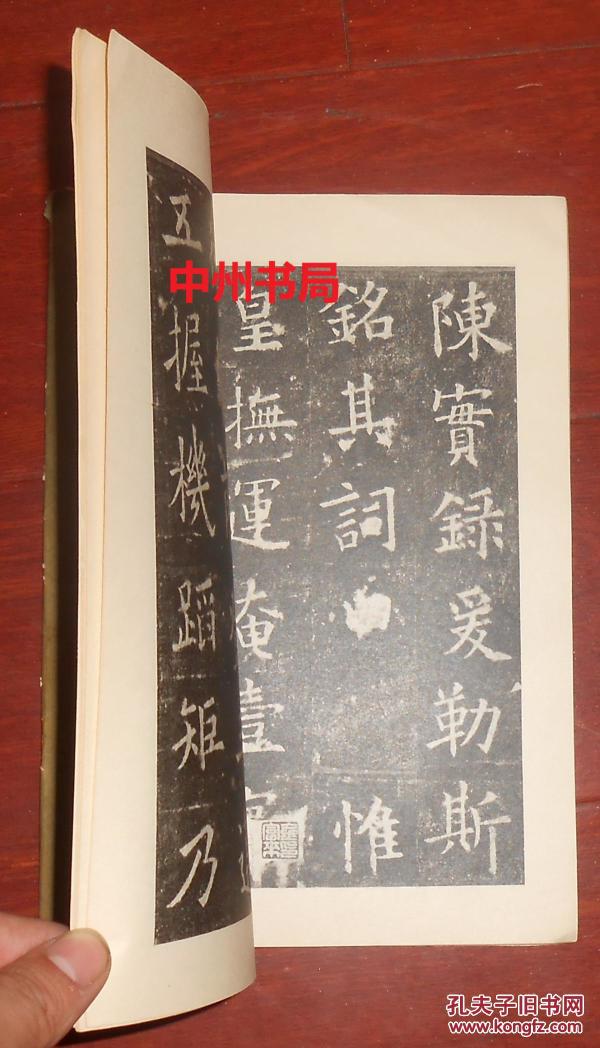 陳實錄爰勒斯
銘其詞 惟
皇撫運奄壹寰
五握機蹈矩乃
中州书局
孔夫子旧书网
www.kongfz.com